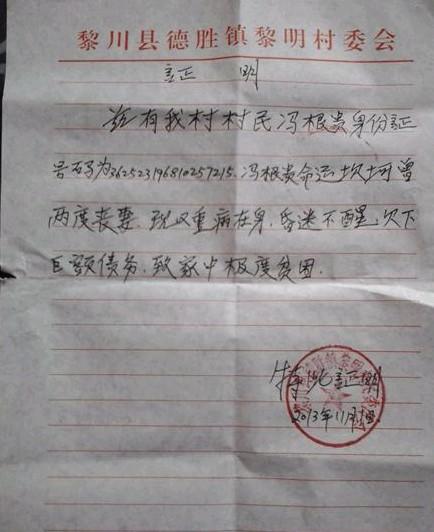 黎川县德胜镇黎明村委会
证 明
兹有我村村民冯根贵身份证
号码为362523196810257215.冯根贵命运坎坷曾
两度丧妻.现又重病在身.昏迷不醒.欠下
巨额债务.致家中极度贫困.
特此证明
2013年11月